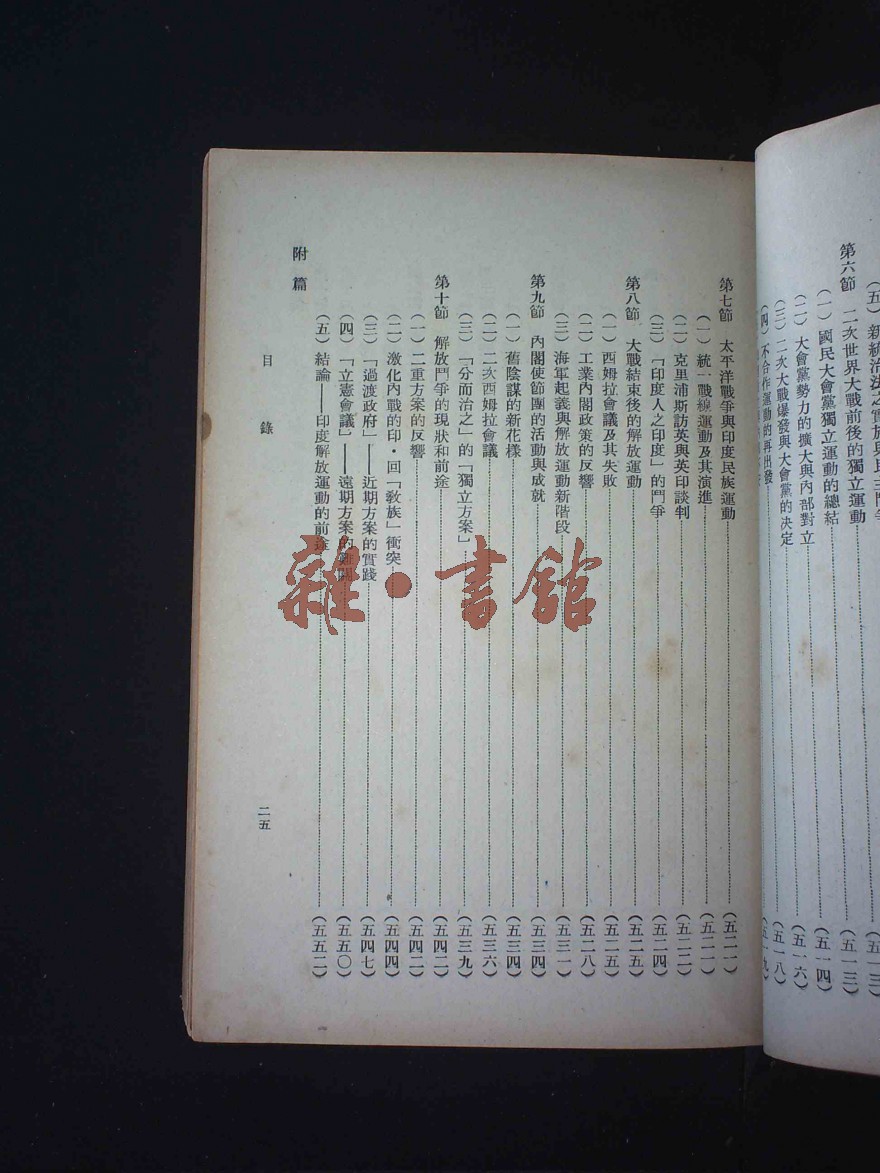 （五）新統治法之實施與民主鬥爭（五一三）
第六節　二次世界大戰前後的獨立運動（五一三）
（一）國民大會黨獨立運動的總結（五一四）
（二）大會黨勢力的擴大與內部對立（五一六）
（三）二次大戰爆發與大會黨的決定（五一八）
（四）不合作運動的再出發（五一九）
第七節　太平洋戰爭與印度民族運動（五二一）
（一）統一戰線運動及其演進（五二一）
（二）克里浦斯訪英與英印談判（五二二）
（三）「印度人之印度」的鬥爭（五二四）
第八節　大戰結束後的解放運動（五二五）
（一）西姆拉會議及其失敗（五二五）
（二）工業內閣政策的反響（五二八）
（三）海軍起義與解放運動新階段（五三一）
第九節　內閣使節團的活動與成就（五三四）
（一）舊陰謀的新花樣（五三四）
（二）二次西姆拉會議（五三六）
（三）「分而治之」的「獨立方案」（五三九）
第十節　解放鬥爭的現狀和前途（五四二）
（一）二重方案的反響（五四二）
（二）激化內戰的印・回「教族」衝突（五四四）
（三）「過渡政府」——近期方案的實踐（五四七）
（四）「立憲會議」——遠期方案的難關（五五〇）
（五）結論——印度解放運動的前途（五五二）
附篇
目錄
二五
雜・書館